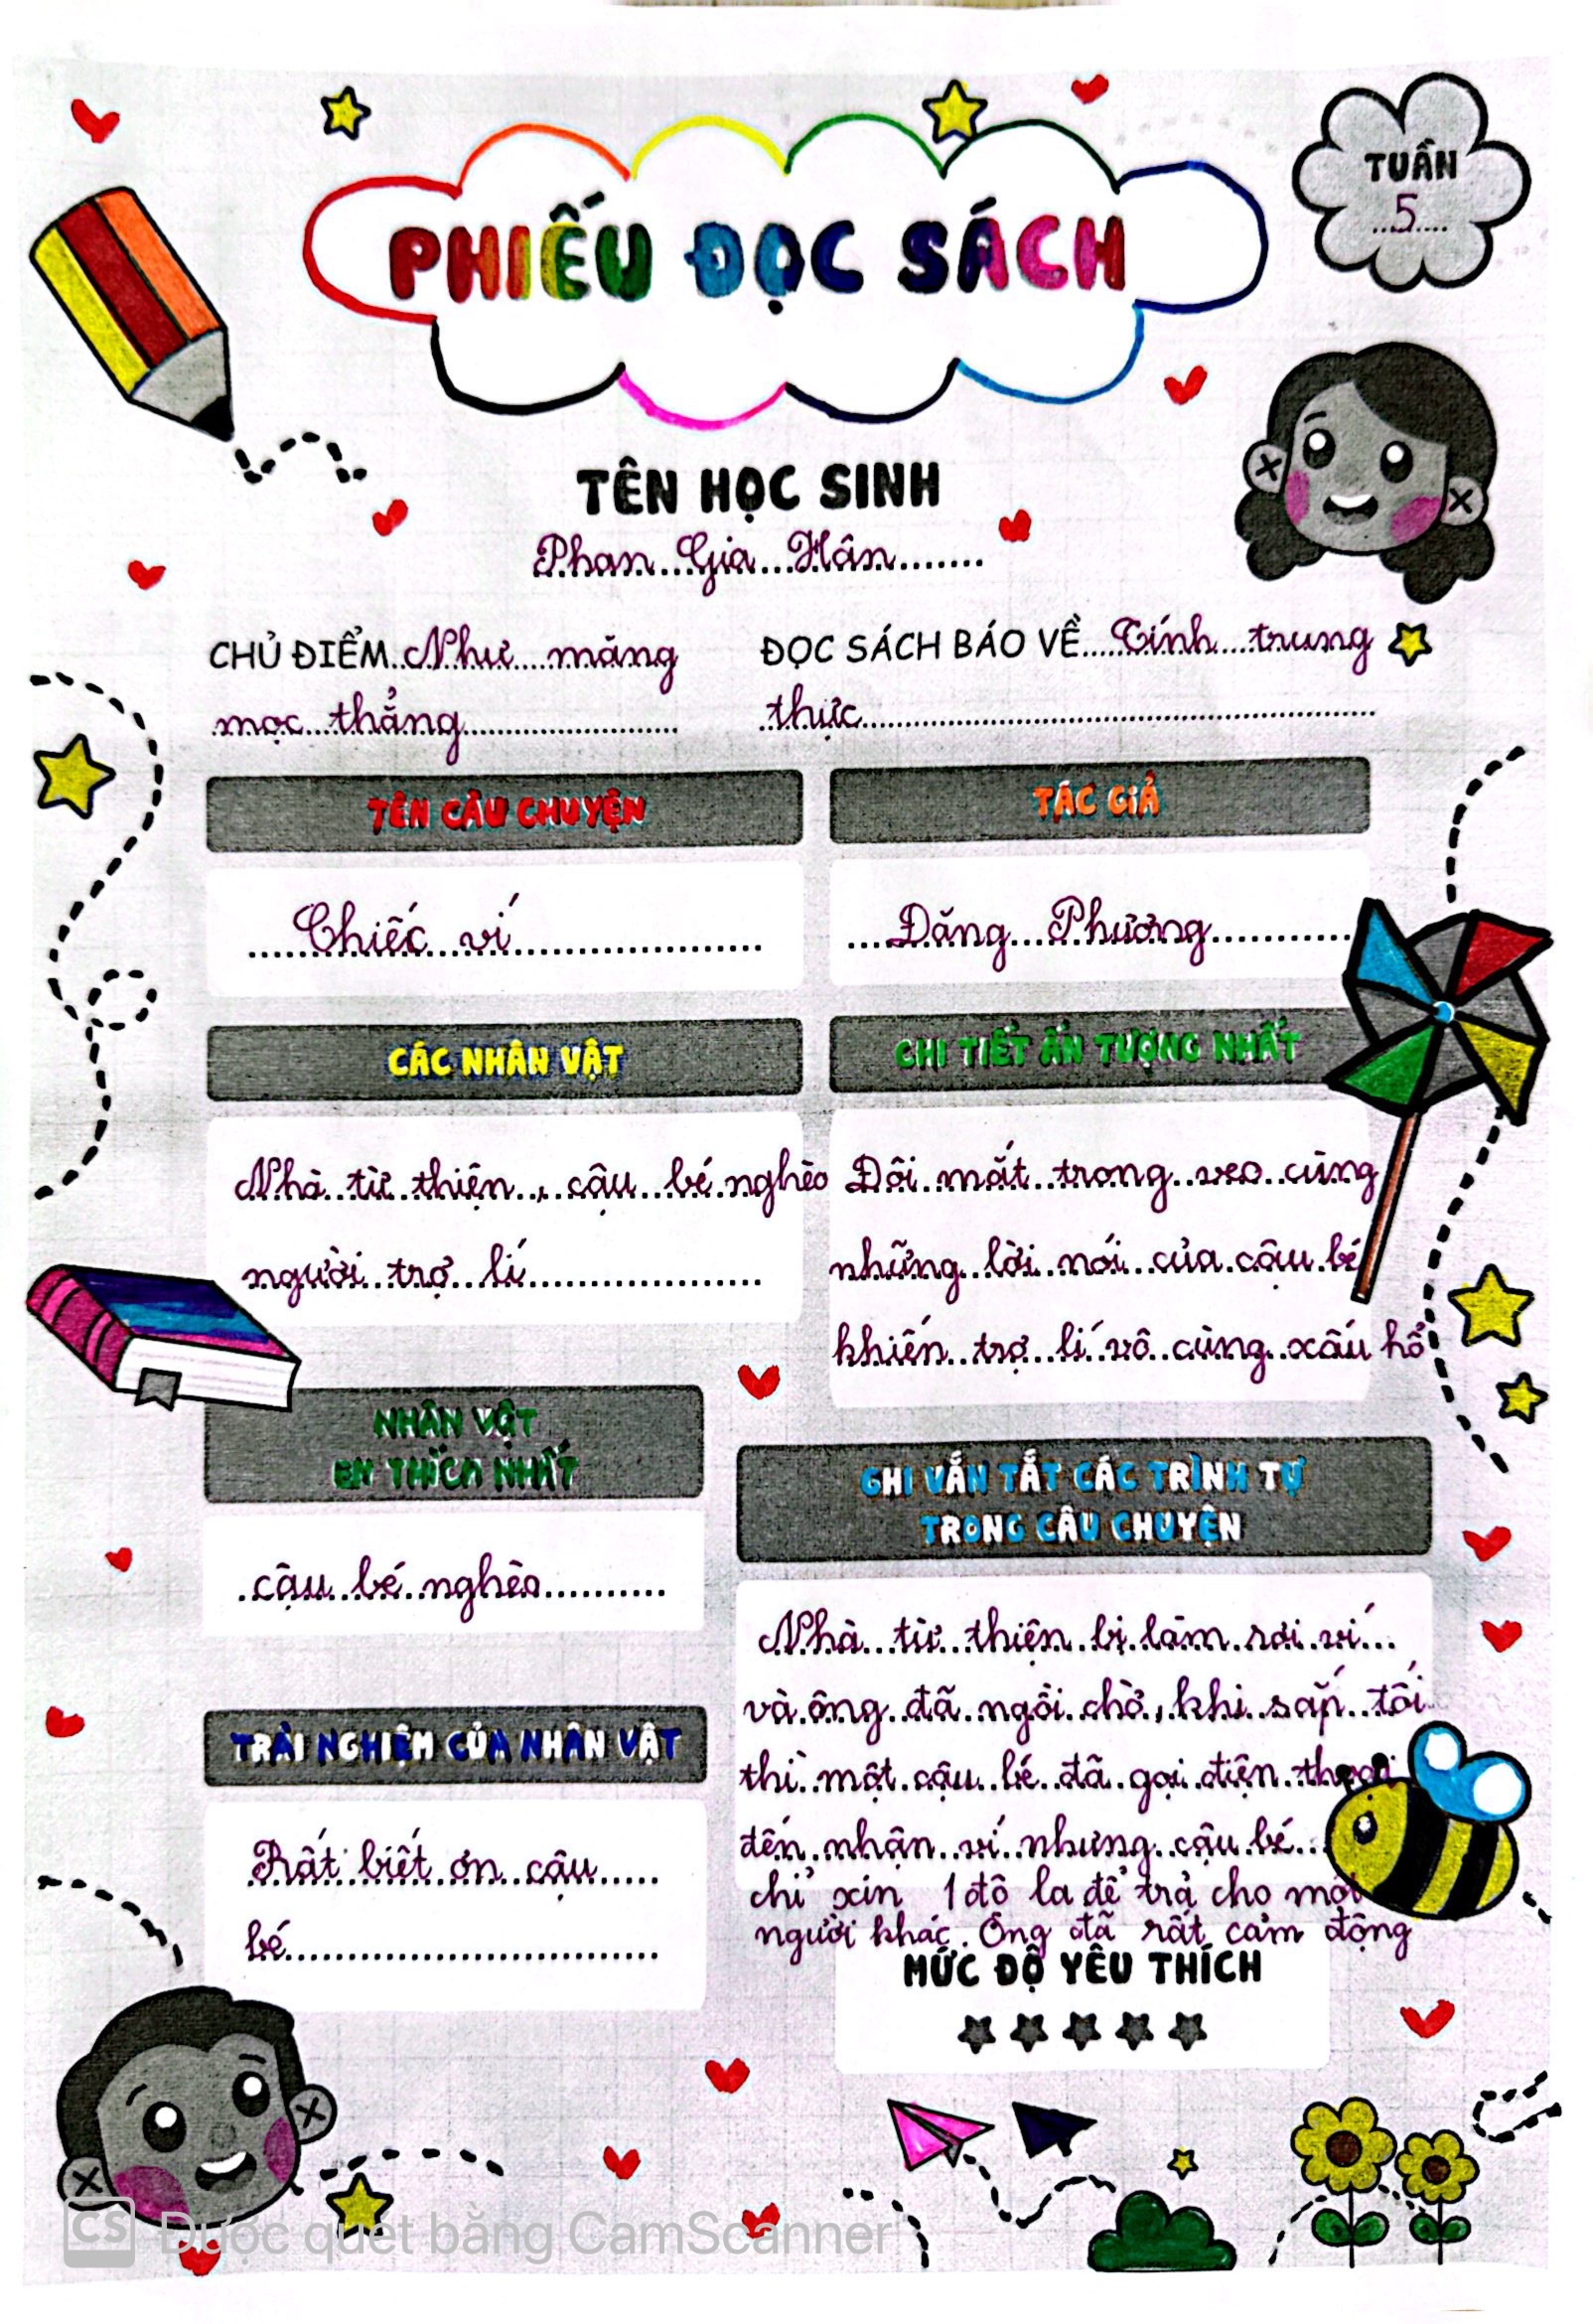 PHIẾU ĐỌC SÁCH
TUẦN
5
TÊN HỌC SINH
Phan Gia Hân
CHỦ ĐIỂM Như măng
mọc thẳng
ĐỌC SÁCH BÁO VỀ Tính trung
thực
TÊN CÂU CHUYỆN
Chiếc ví
TÁC GIẢ
Đăng Phương
CÁC NHÂN VẬT
Nhà từ thiện, cậu bé nghèo
người trợ lí
CHI TIẾT ẤN TƯỢNG NHẤT
Đôi mắt trong veo cùng
những lời nói của cậu bé
khiến trợ lí vô cùng xấu hổ
NHÂN VẬT
EM THÍCH NHẤT
cậu bé nghèo
TRẢI NGHIỆM CỦA NHÂN VẬT
Rất biết ơn cậu
bé
GHI VẮN TẮT CÁC TRÌNH TỰ
TRONG CÂU CHUYỆN
Nhà từ thiện bị làm rơi ví
và ông đã ngồi chờ, khi sắp tối
thì một cậu bé đã gọi điện thoại
đến nhận ví nhưng cậu bé
chỉ xin 1 đô la để trả cho một
người khác. Ông đã rất cảm động
MỨC ĐỘ YÊU THÍCH
CS Được quét bằng CamScanner